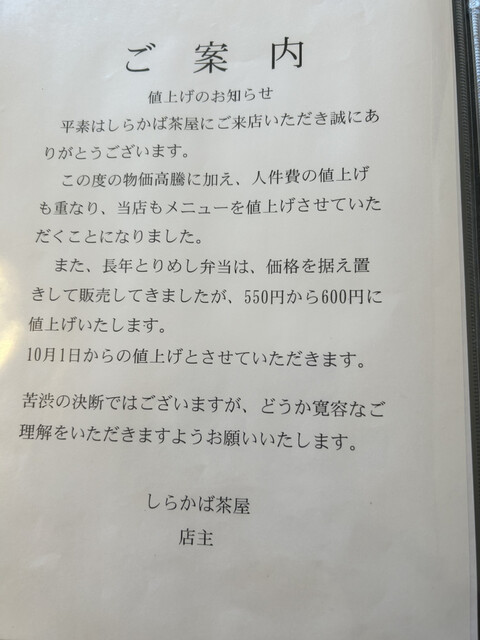 ご案内
値上げのお知らせ
平素はしらかば茶屋にご来店いただき誠にあ
りがとうございます。
この度の物価高騰に加え、人件費の値上げ
も重なり、当店もメニューを値上げさせていた
だくことになりました。
また、長年とりめし弁当は、価格を据え置
きして販売してきましたが、550円から600円に
値上げいたします。
10月1日からの値上げとさせていただきます。
苦渋の決断ではございますが、どうか寛容なご
理解をいただきますようお願いいたします。
しらかば茶屋
店主